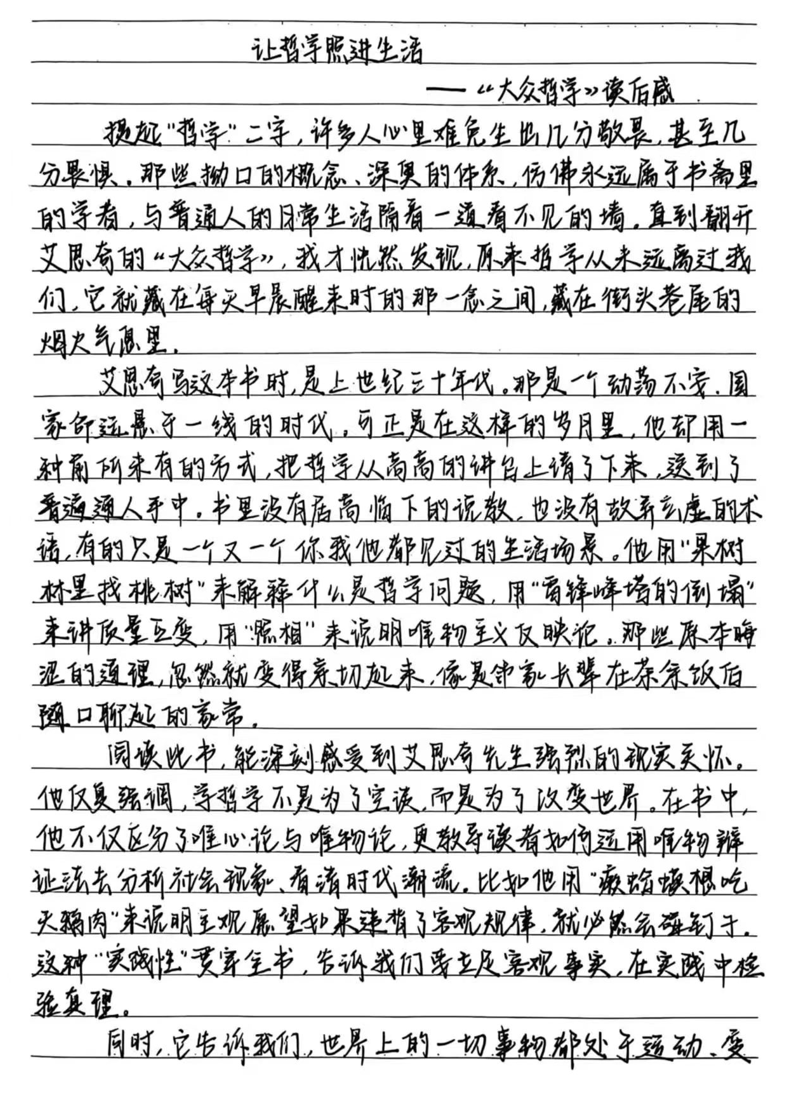 让哲学照进生活
——《大众哲学》读后感
提起“哲学”二字,许多人心里难免生出几分敬畏,甚至几
分畏惧。那些拗口的概念、深奥的体系,仿佛永远属于书斋里
的学者,与普通人的日常生活隔着一道看不见的墙。直到翻开
艾思奇的《大众哲学》,我才恍然发现,原来哲学从未远离过我
们,它就藏在每天早晨醒来时的那一念之间,藏在街头巷尾的
烟火气息里。
艾思奇写这本书时,是上世纪三十年代。那是一个动荡不安、国
家命运悬于一线的时代。可正是在这样的岁月里,他却用一
种前所未有的方式,把哲学从高高的讲台上请了下来,送到了
普遍通人手中。书里没有居高临下的说教,也没有故弄玄虚的术
语,有的只是一个又一个你我他都见过的生活场景。他用“果树
林里找桃树”来解释什么是哲学问题,用“雷锋峰塔的倒塌”
来讲质量互变,用“照相”来说明唯物主义反映论。那些原本晦
涩的道理,忽然就变得亲切起来,像是邻家长辈在茶余饭后
随口聊起的家常。
阅读此书,能深刻感受到艾思奇先生强烈的现实关怀。
他反复强调,学哲学不是为了空谈,而是为了改变世界。在书中,
他不仅区分了唯心论与唯物论,更教导读者如何运用唯物辩
证法去分析社会现象、看清时代潮流。比如他用“癞蛤蟆想吃
天鹅肉”来说明主观愿望如果违背了客观规律,就必然会碰钉子。
这种“实践性”贯穿全书,告诉我们要立足客观事实,在实践中检
验真理。
同时,它告诉我们,世界上的一切事物都处于运动、变